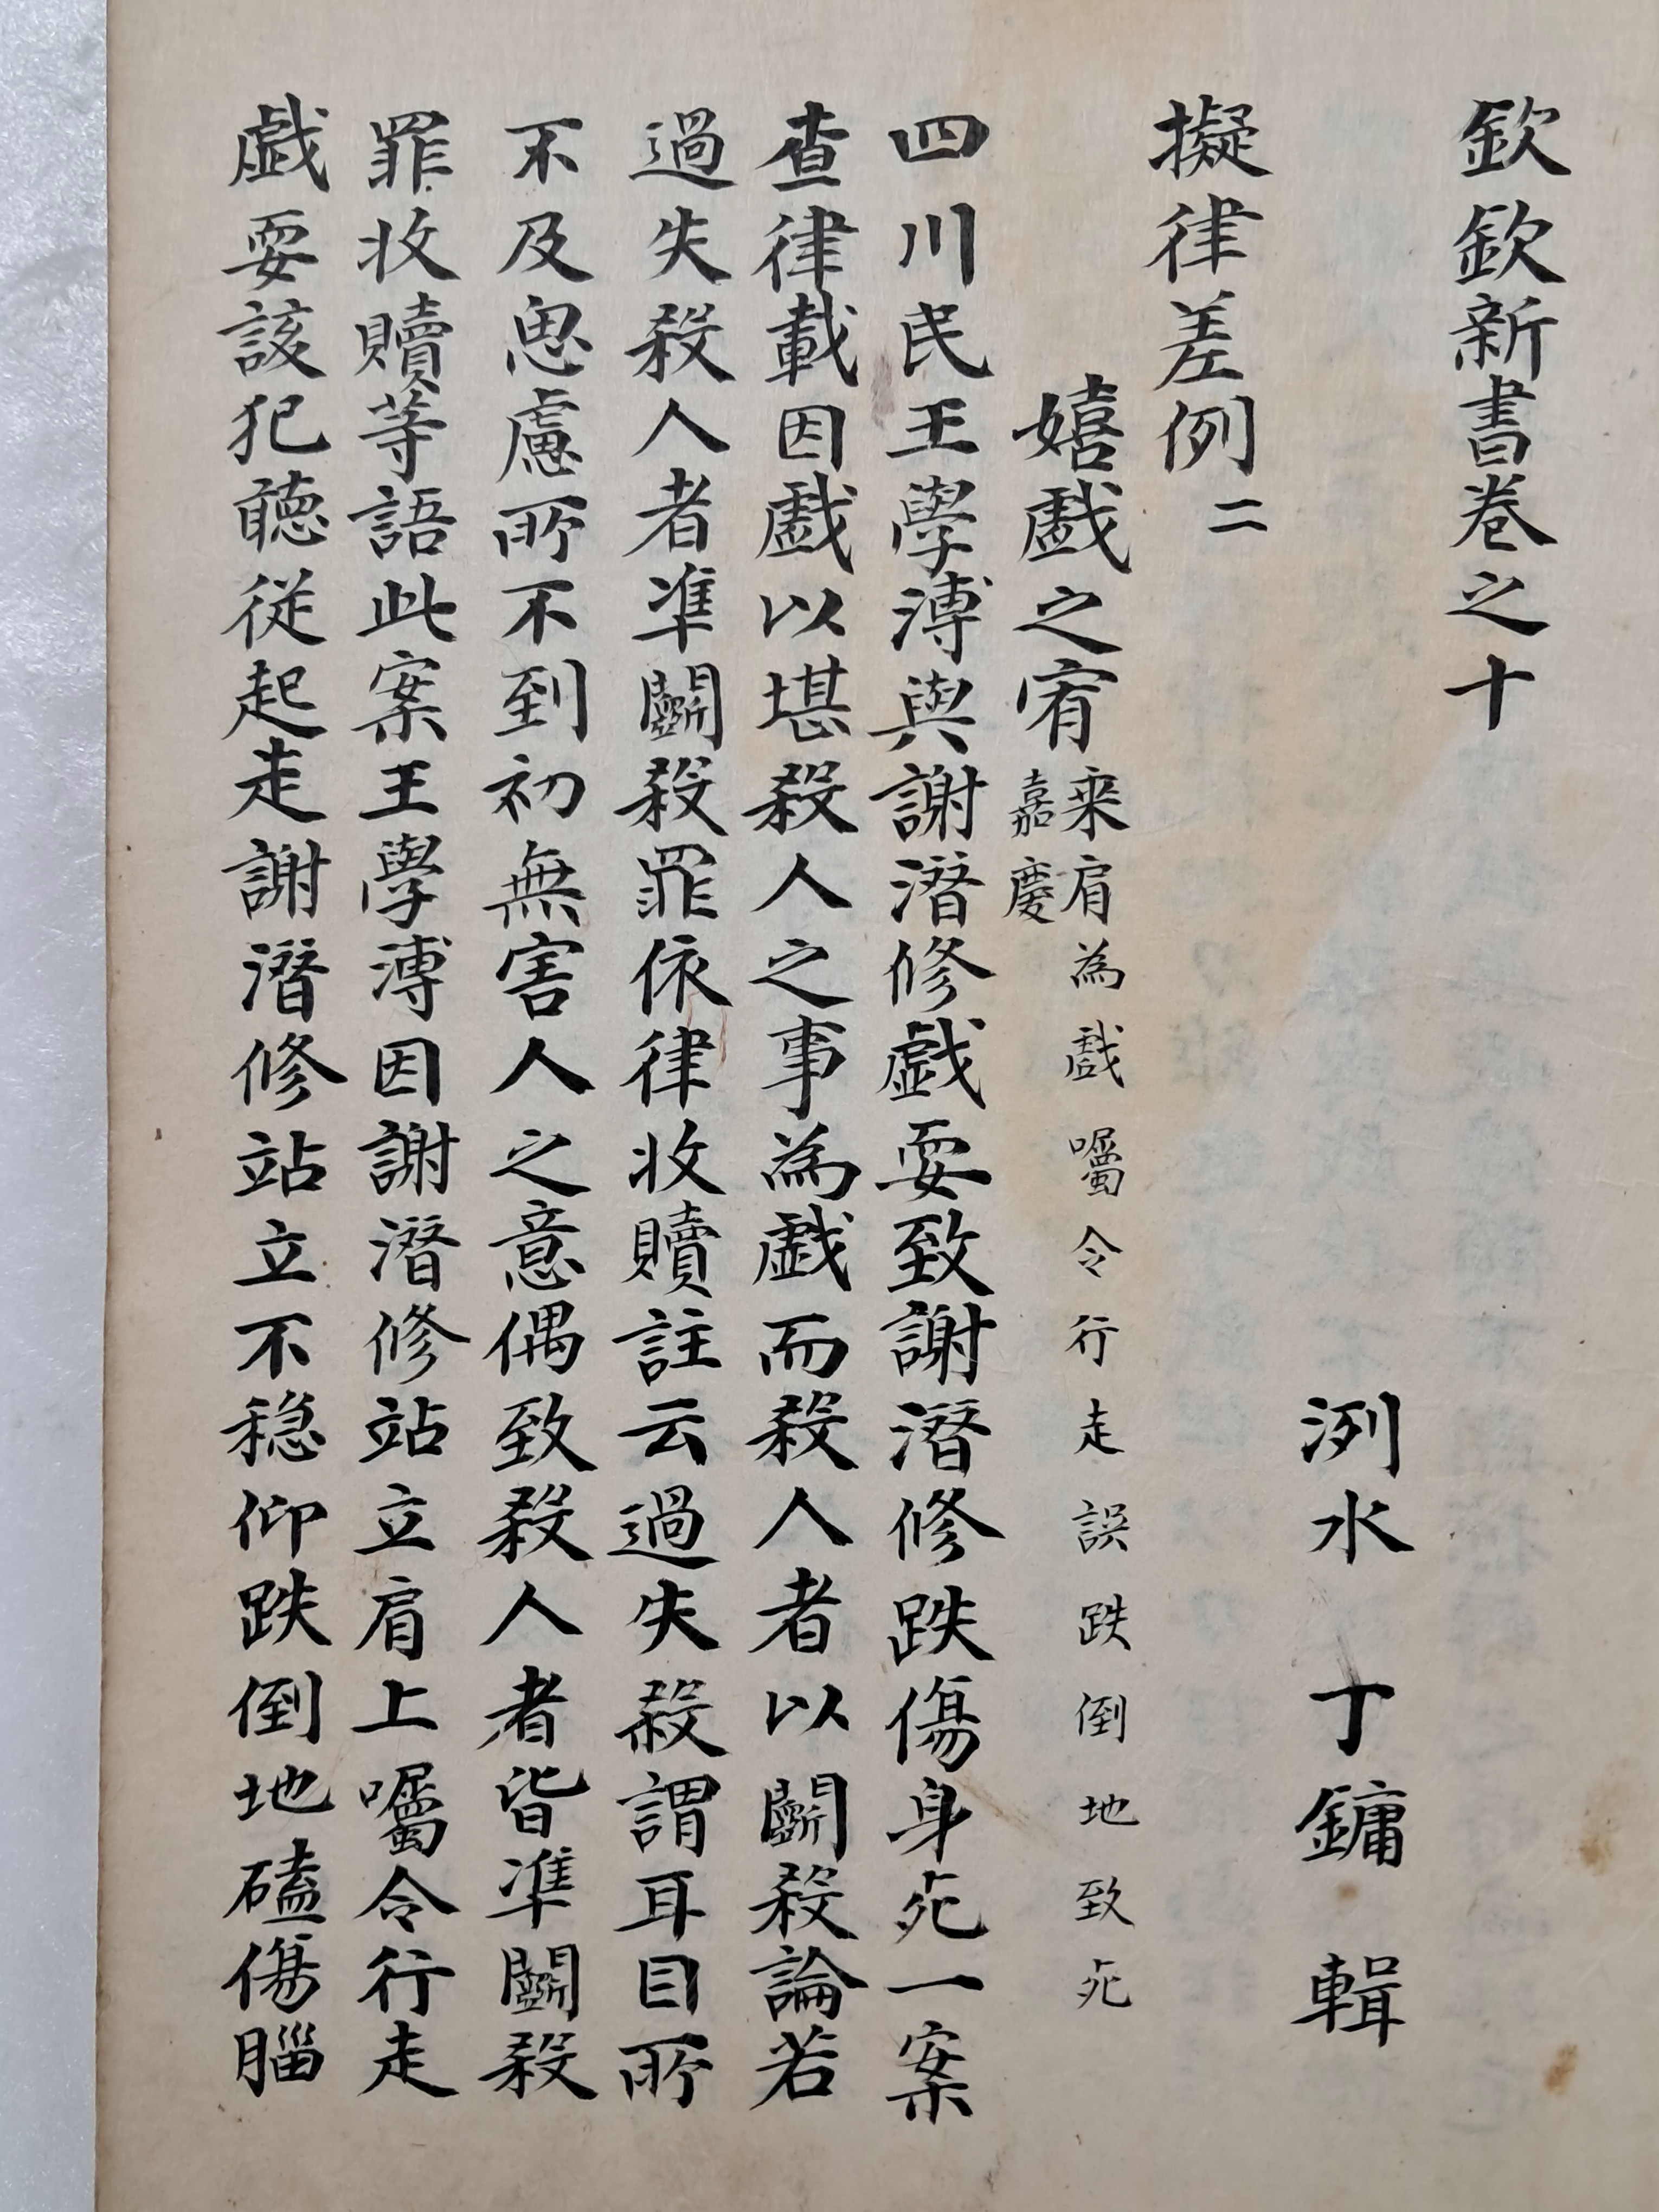 欽欽新書卷之十
洌水 丁鏞 輯
擬律差例 二
嬉戲之宥 乘肩為戲囑令行走誤跌倒地致死 嘉慶
四川民王學溥與謝潛修戲耍致謝潛修跌傷身死一案
查律載因戲以堪殺人之事為戲而殺人者以鬪殺論若
過失殺人者準鬪殺罪依律收贖註云過失殺謂耳目所
不及思慮所不到初無害人之意偶致殺人者皆準鬪殺
罪收贖等語此案王學溥因謝潛修站立肩上囑令行走
戲耍該犯聽從起走謝潛修站立不穩仰跌倒地磕傷腦